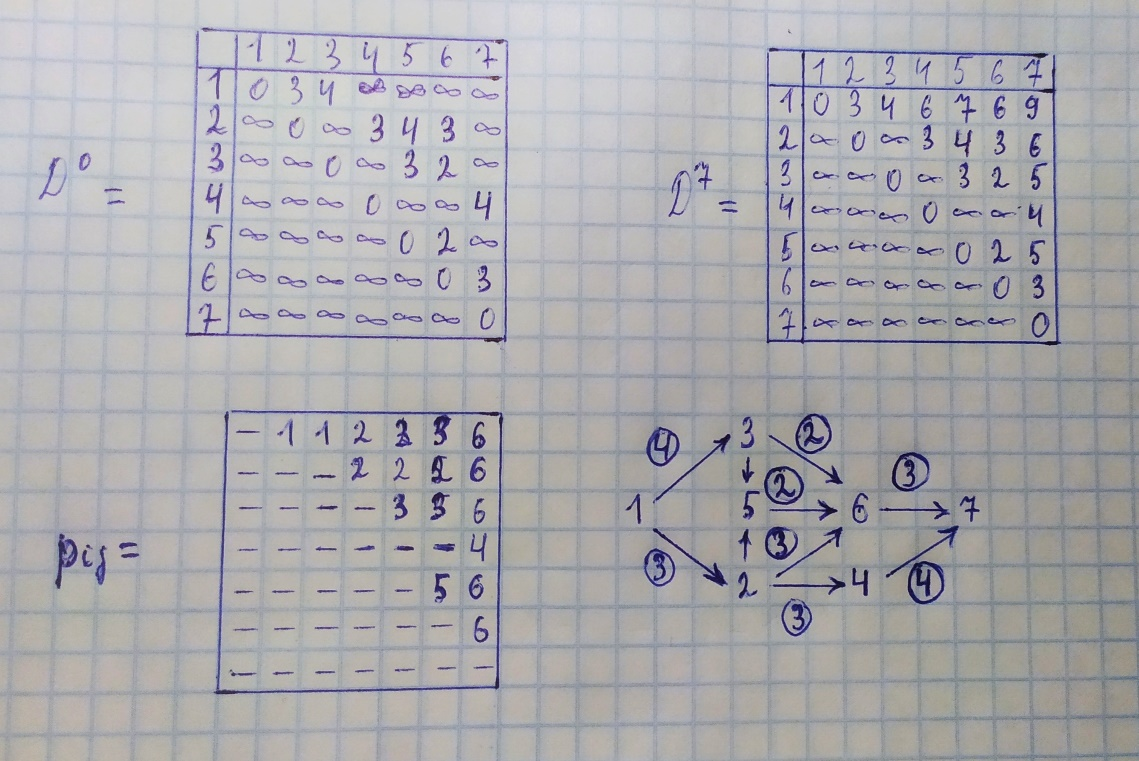 D⁰ =
1 2 3 4 5 6 7
1 0 3 4 ∞ ∞ ∞ ∞
2 ∞ 0 ∞ 3 4 3 ∞
3 ∞ ∞ 0 ∞ 3 2 ∞
4 ∞ ∞ ∞ 0 ∞ ∞ 4
5 ∞ ∞ ∞ ∞ 0 2 ∞
6 ∞ ∞ ∞ ∞ ∞ 0 3
7 ∞ ∞ ∞ ∞ ∞ ∞ 0
D⁷ =
1 2 3 4 5 6 7
1 0 3 4 6 7 6 9
2 ∞ 0 ∞ 3 4 3 6
3 ∞ ∞ 0 ∞ 3 2 5
4 ∞ ∞ ∞ 0 ∞ ∞ 4
5 ∞ ∞ ∞ ∞ 0 2 5
6 ∞ ∞ ∞ ∞ ∞ 0 3
7 ∞ ∞ ∞ ∞ ∞ ∞ 0
pij =
– 1 1 2 3 6
– – – 2 2 2 6
– – – – 3 3 6
– – – – – – 4
– – – – – 5 6
– – – – – – 6
– – – – – – –
4 3 2
1 5 2 6 3 7
3 2 3 4 4
3